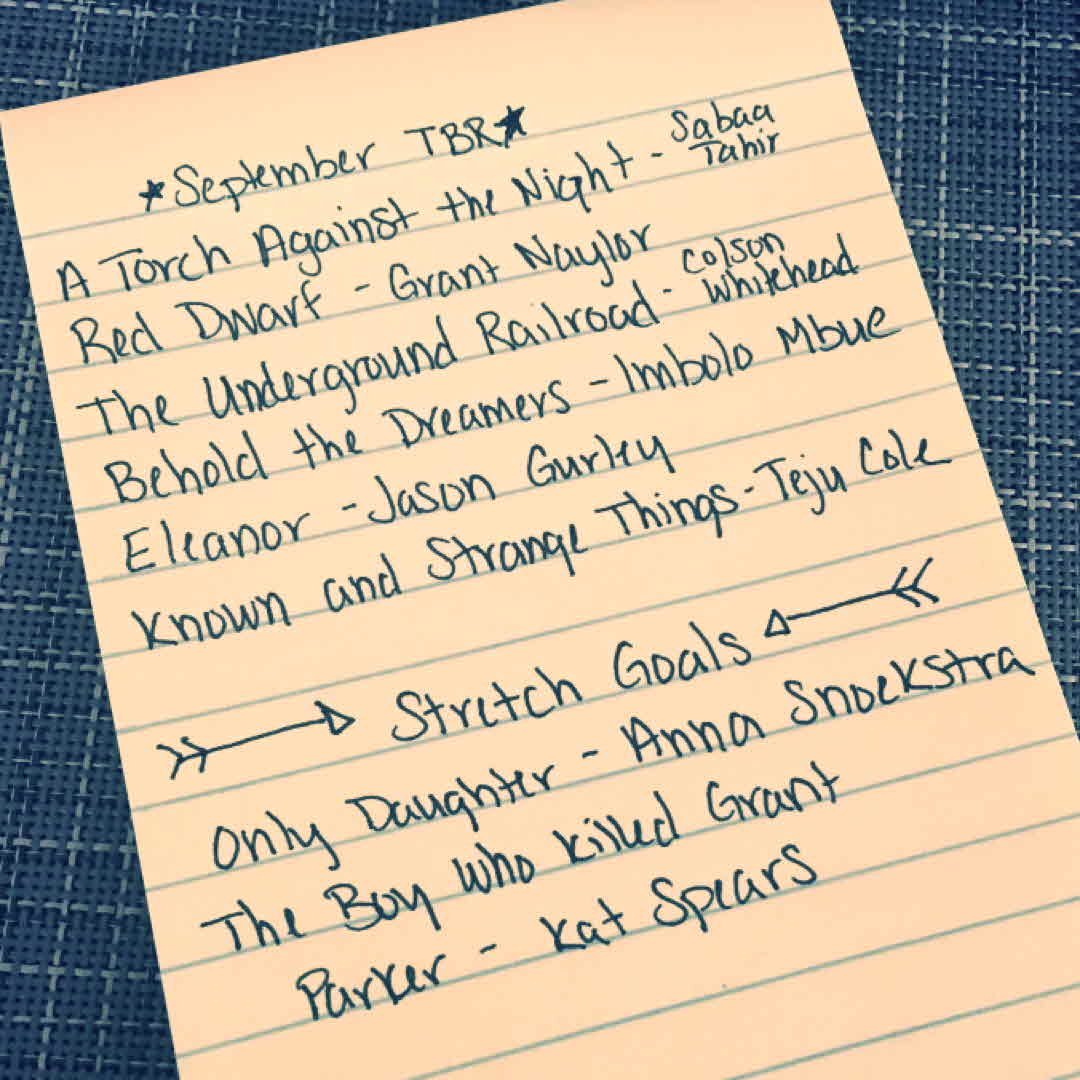 ★September TBR★
A Torch Against the Night - Sabaa Tahir
Red Dwarf - Grant Naylor
The Underground Railroad - Colson Whitehead
Behold the Dreamers - Imbolo Mbue
Eleanor - Jason Gurley
Known and Strange Things - Teju Cole
Stretch Goals
Only Daughter - Anna Snoekstra
The Boy Who Killed Grant
Parker - Kat Spears